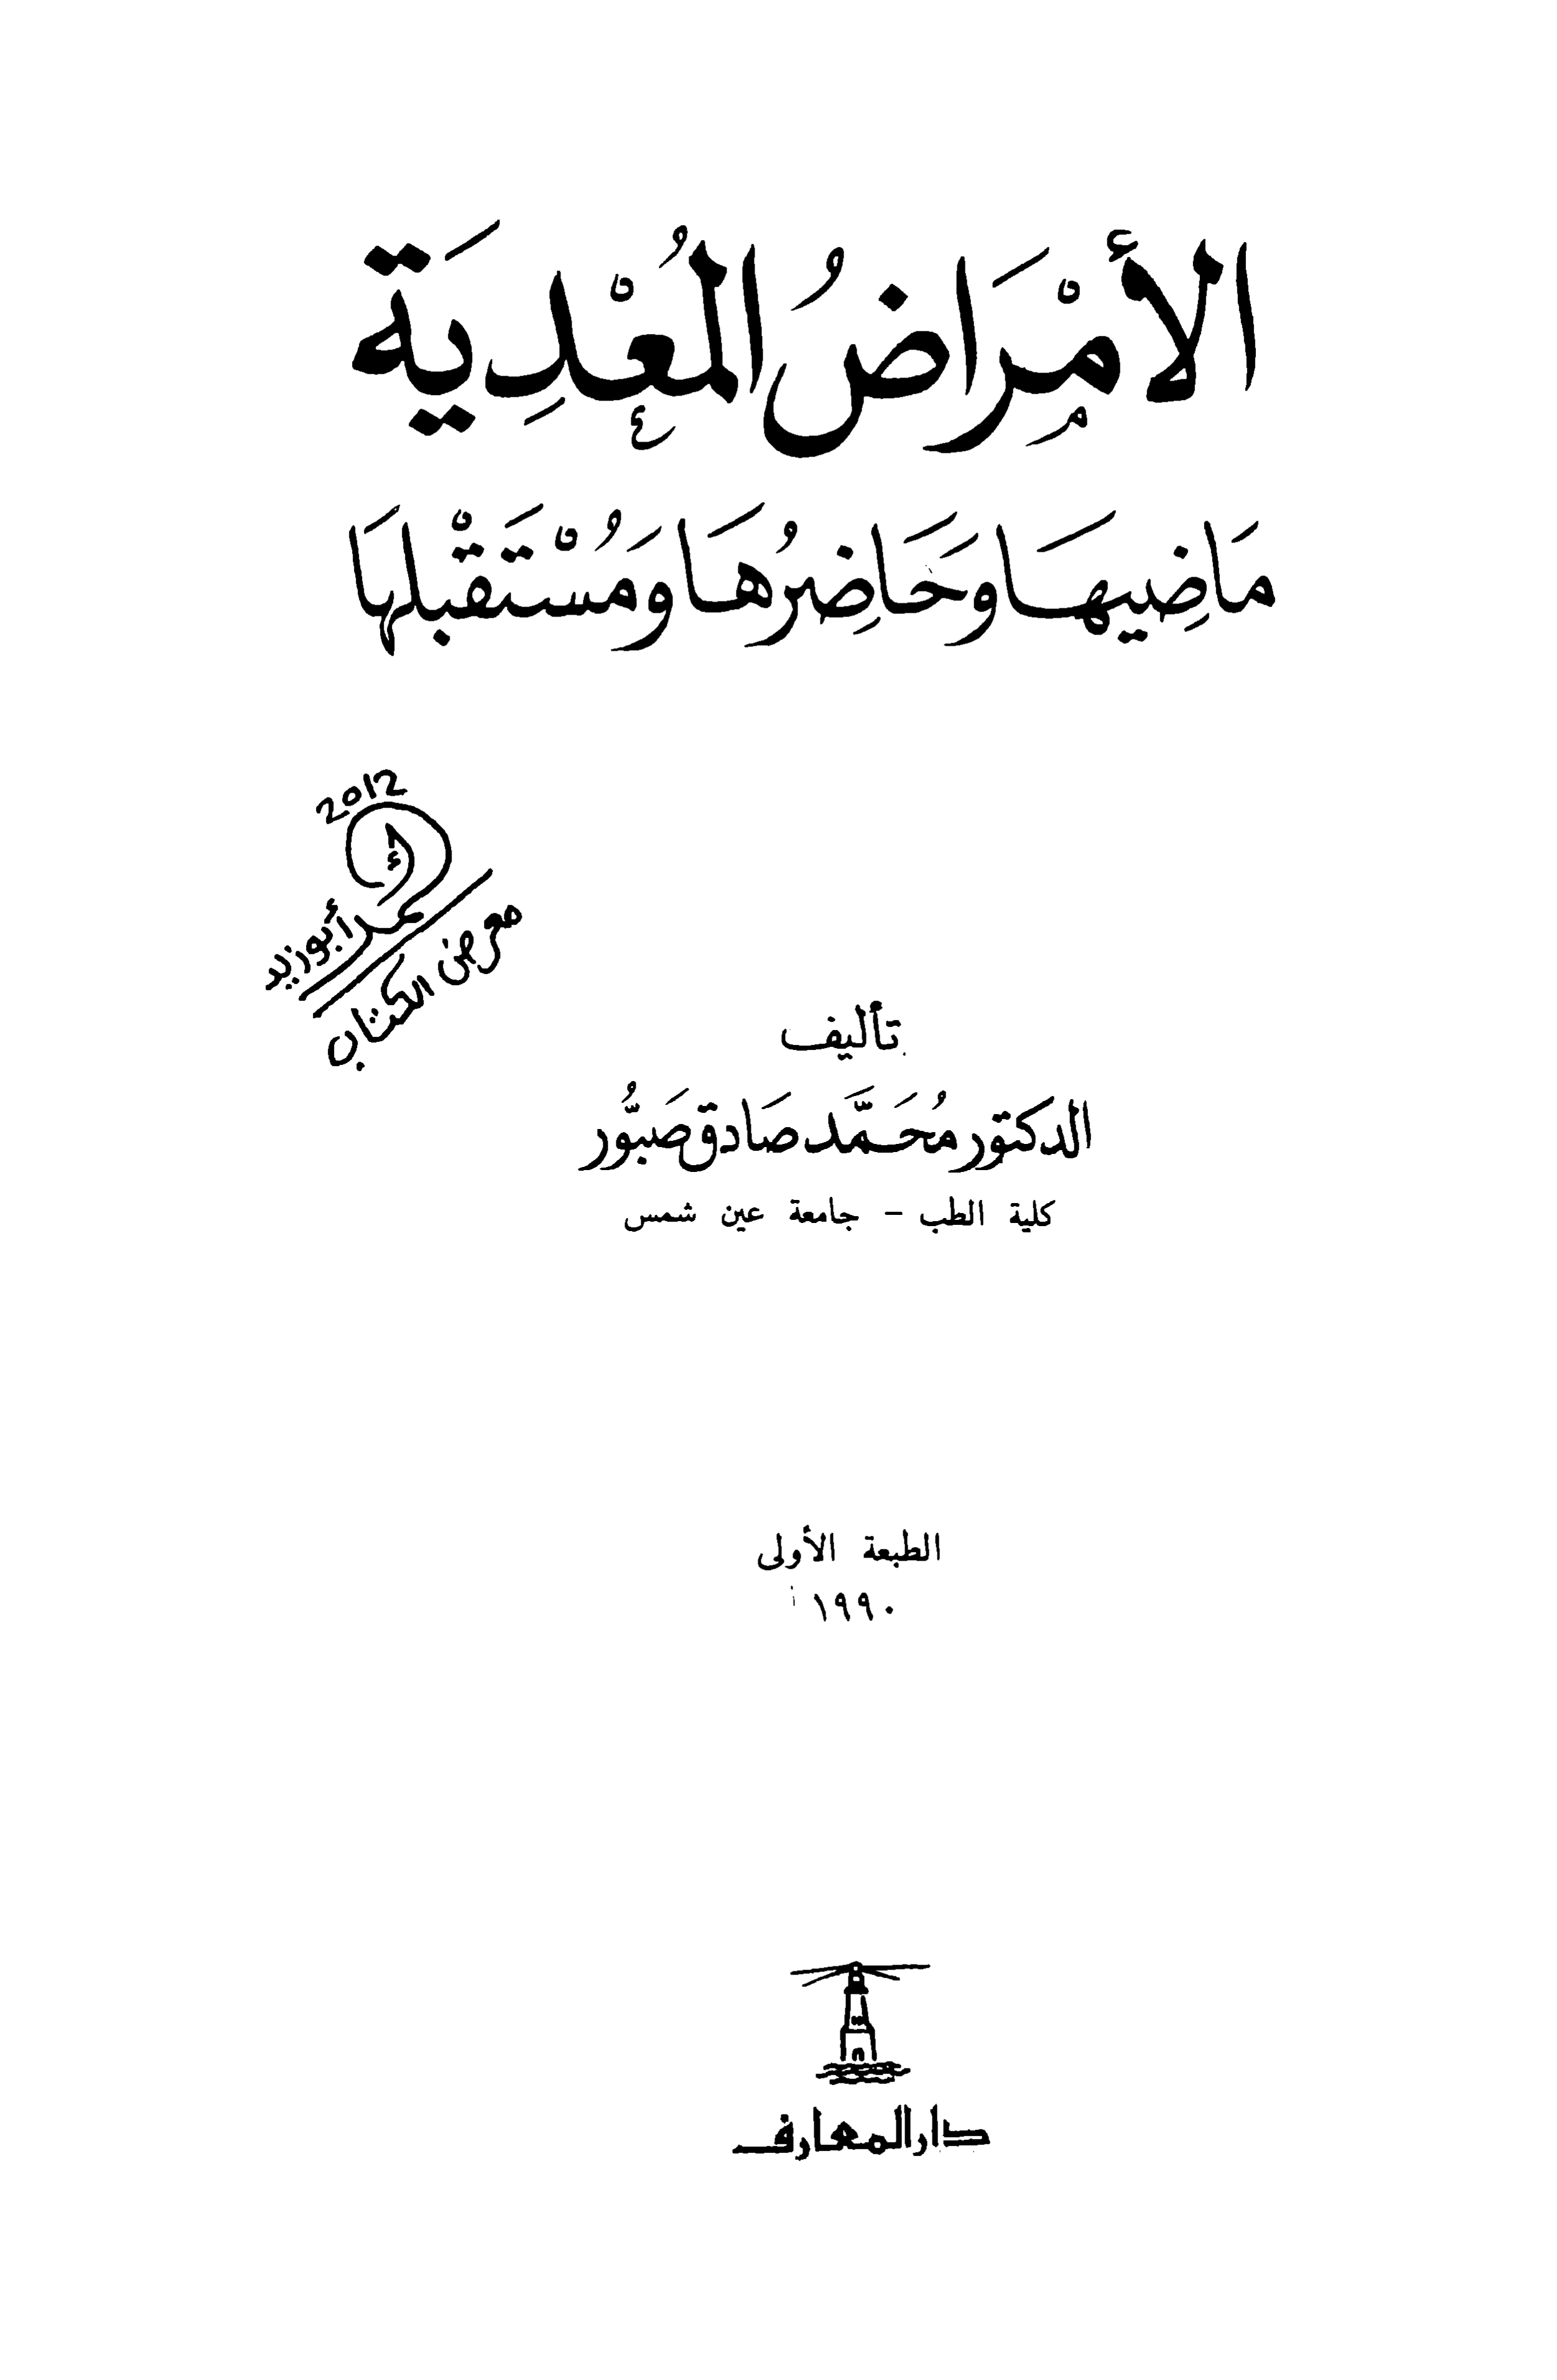 الأَمْرَاضُ المُعْدِيَة
مَاضِيهَا وَحَاضِرُهَا وَمُسْتَقْبَلهَا
2012
أحمد أبوزيد
معرض الكتاب
تأليف
الدكتور مُحَمَّد صَادق صَبُّور
كلية الطب - جامعة عين شمس
الطبعة الأولى
١٩٩٠
دار المعارف